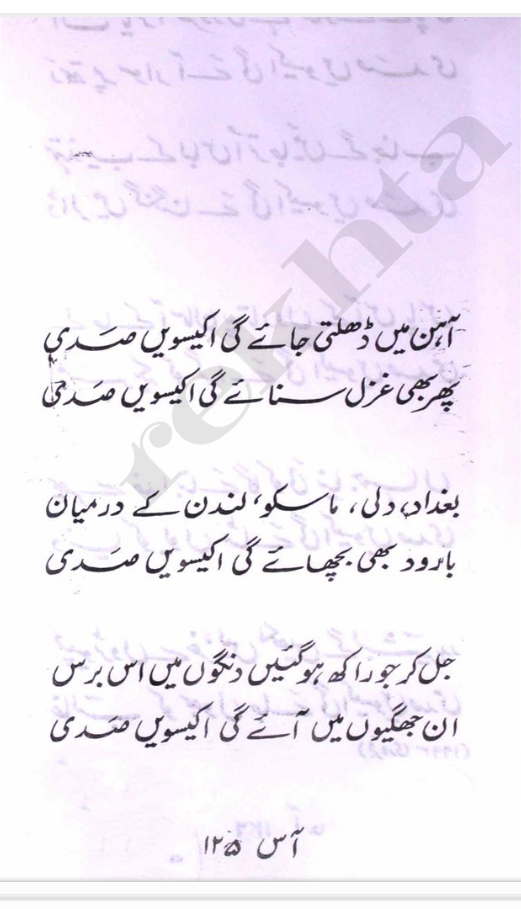 آہن میں ڈھلتی جائے گی اکیسویں صدی
پھر بھی غزل سنائے گی اکیسویں صدی
بغداد، دلی، ماسکو، لندن کے درمیان
بارود بھی بچھائے گی اکیسویں صدی
جل کر جو راکھ ہوگئیں دنگوں میں اس برس
ان جھگیوں میں آئے گی اکیسویں صدی
آس ۱۲۵
rekhta